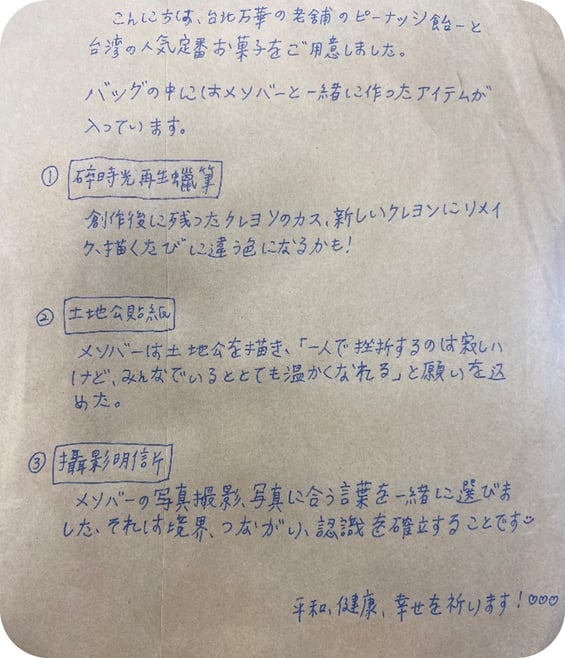 こんにちは、台北万華の老舗のピーナッツ飴ーと
台湾の人気定番お菓子をご用意しました。
バッグの中にはメンバーと一緒に作ったアイテムが
入っています。
① 碎時光再生蠟筆
創作後に残ったクレヨンのカス、新しいクレヨンにリメイ
ク、描くたびに違う色になるかも!
② 土地公貼紙
メンバーは土地公を描き、「一人で挫折するのは寂しい
けど、みんなでいるととても温かくなれる」と願いを込
めた。
③ 攝影明信片
メンバーの写真撮影、写真に合う言葉を一緒に選びま
した、それは境界、つながり、認識を確立することです
平和、健康、幸せを祈ります!♡♡♡